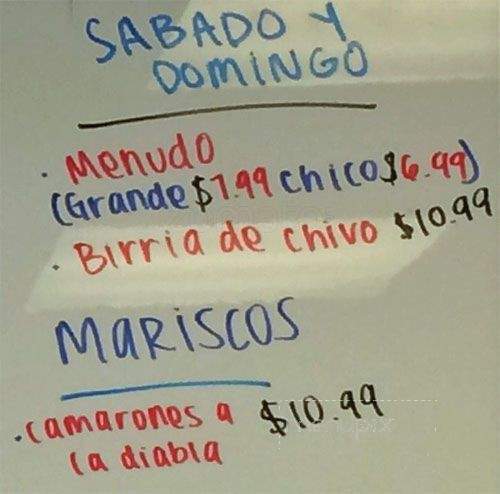 SABADO Y
DOMINGO
. Menudo
(Grande $7.99 chico $6.99)
. Birria de chivo $10.99
MARISCOS
. camarones a $10.99
la diabla